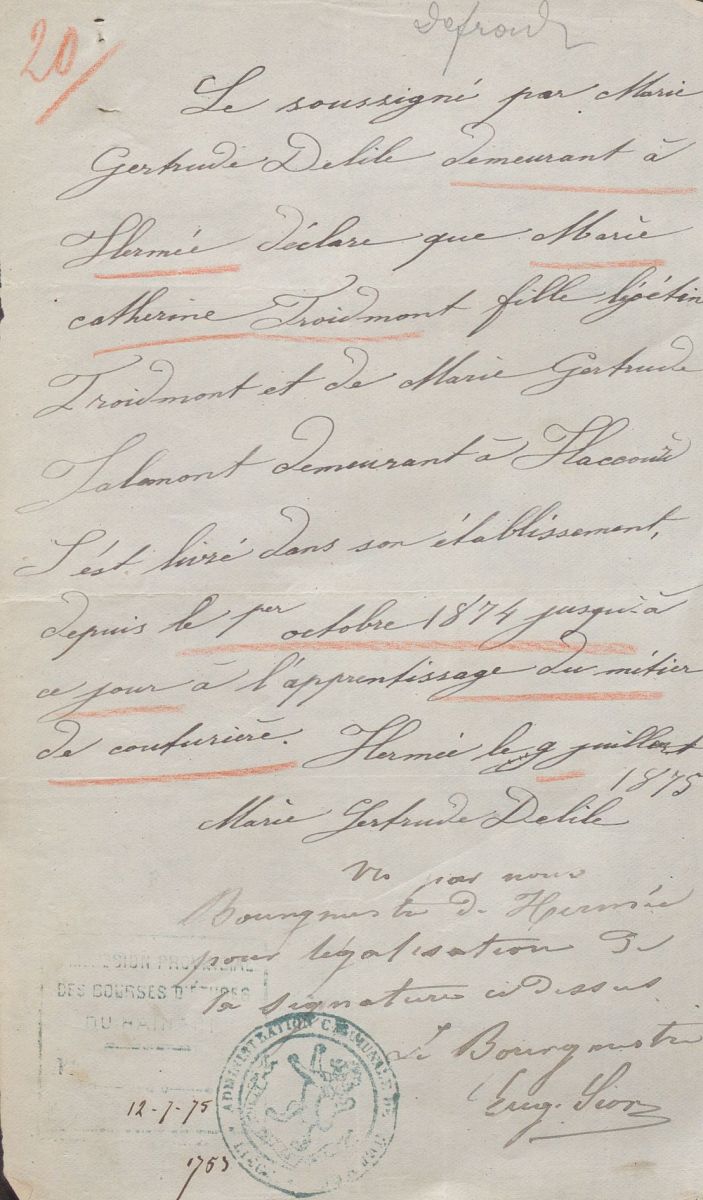 20
Defroidt
Le soussigné par Marie
Gertrude Delile demeurant à
Hermée déclare que Marie
catherine Froidmont fille
Froidmont et de Marie Gertrude
Jalamont demeurant à Haccour
S'est livré dans son établissement,
depuis le per octobre 1874 jusqu'à
ce jour à l'apprentissage du métier
de couturière. Hermée le 9 juillet
1875
Marie Gertrude Delile
Vu par nous
Bourgmestre de Hermée
pour légalisation de
la signature ci dessus
Le Bourgmestre
Eug.
PROVINCIALE
DES BOURSES D'ÉTUDES
DU HAINAUT
N
12-7-75
1753
ADMINISTRATION COMMUNALE DE
LIÉGE